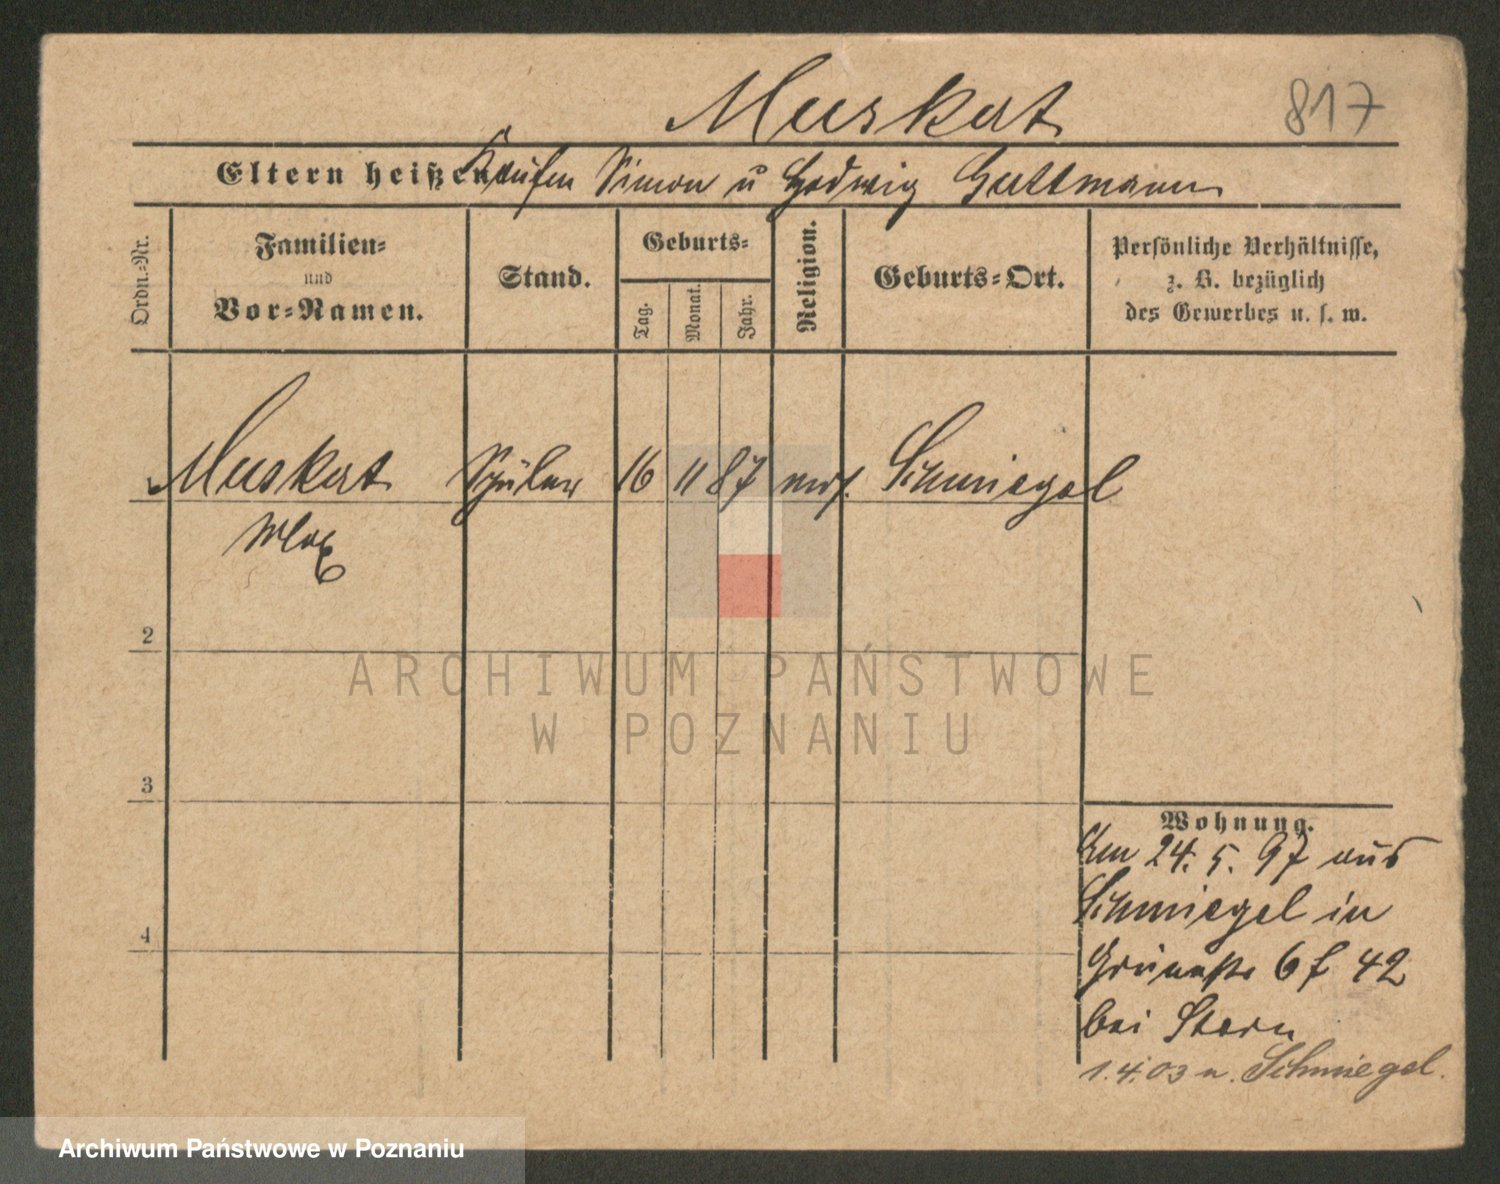 Muskat
817
Eltern heißen Kaufm Simon u Hedwig Guttmann
Ordn.-Nr.
Familien-
und
Vor-Namen.
Stand.
Geburts-
Tag.
Monat.
Jahr.
Religion.
Geburts-Ort.
Persönliche Verhältnisse,
z. B. bezüglich
des Gewerbes u. s. w.
Muskat Schüler 16 11 87 mos. Schmiegel
Max
2
3
4
Wohnung.
Am 24. 5. 97 aus
Schmiegel in
42
bei Stern
1.4.03 n. Schmiegel.
ARCHIWUM PAŃSTWOWE
W POZNANIU
Archiwum Państwowe w Poznaniu